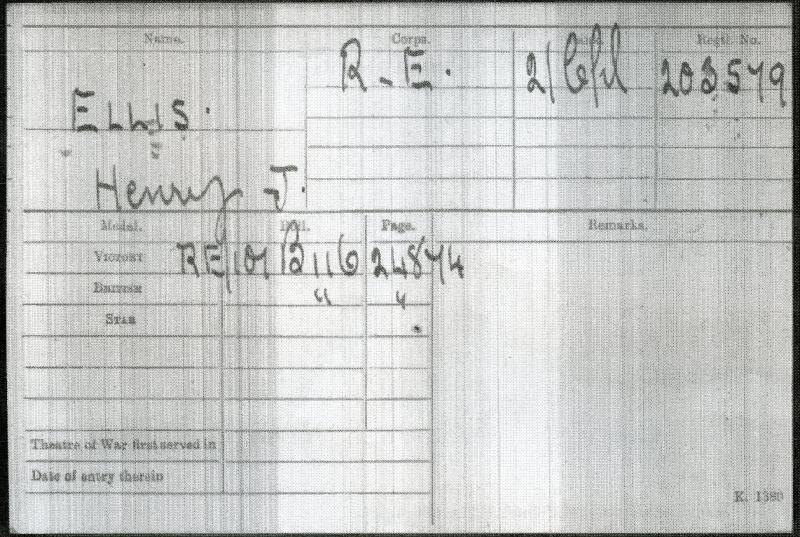 Name. Corps. Regtl. No.
R. E. 2/Cpl 203579
ELLIS.
Henry J.
Medal. Roll. Page. Remarks.
VICTORY RE/101 B116 24874
BRITISH " "
STAR
Theatre of War first served in
Date of entry therein
K. 1380